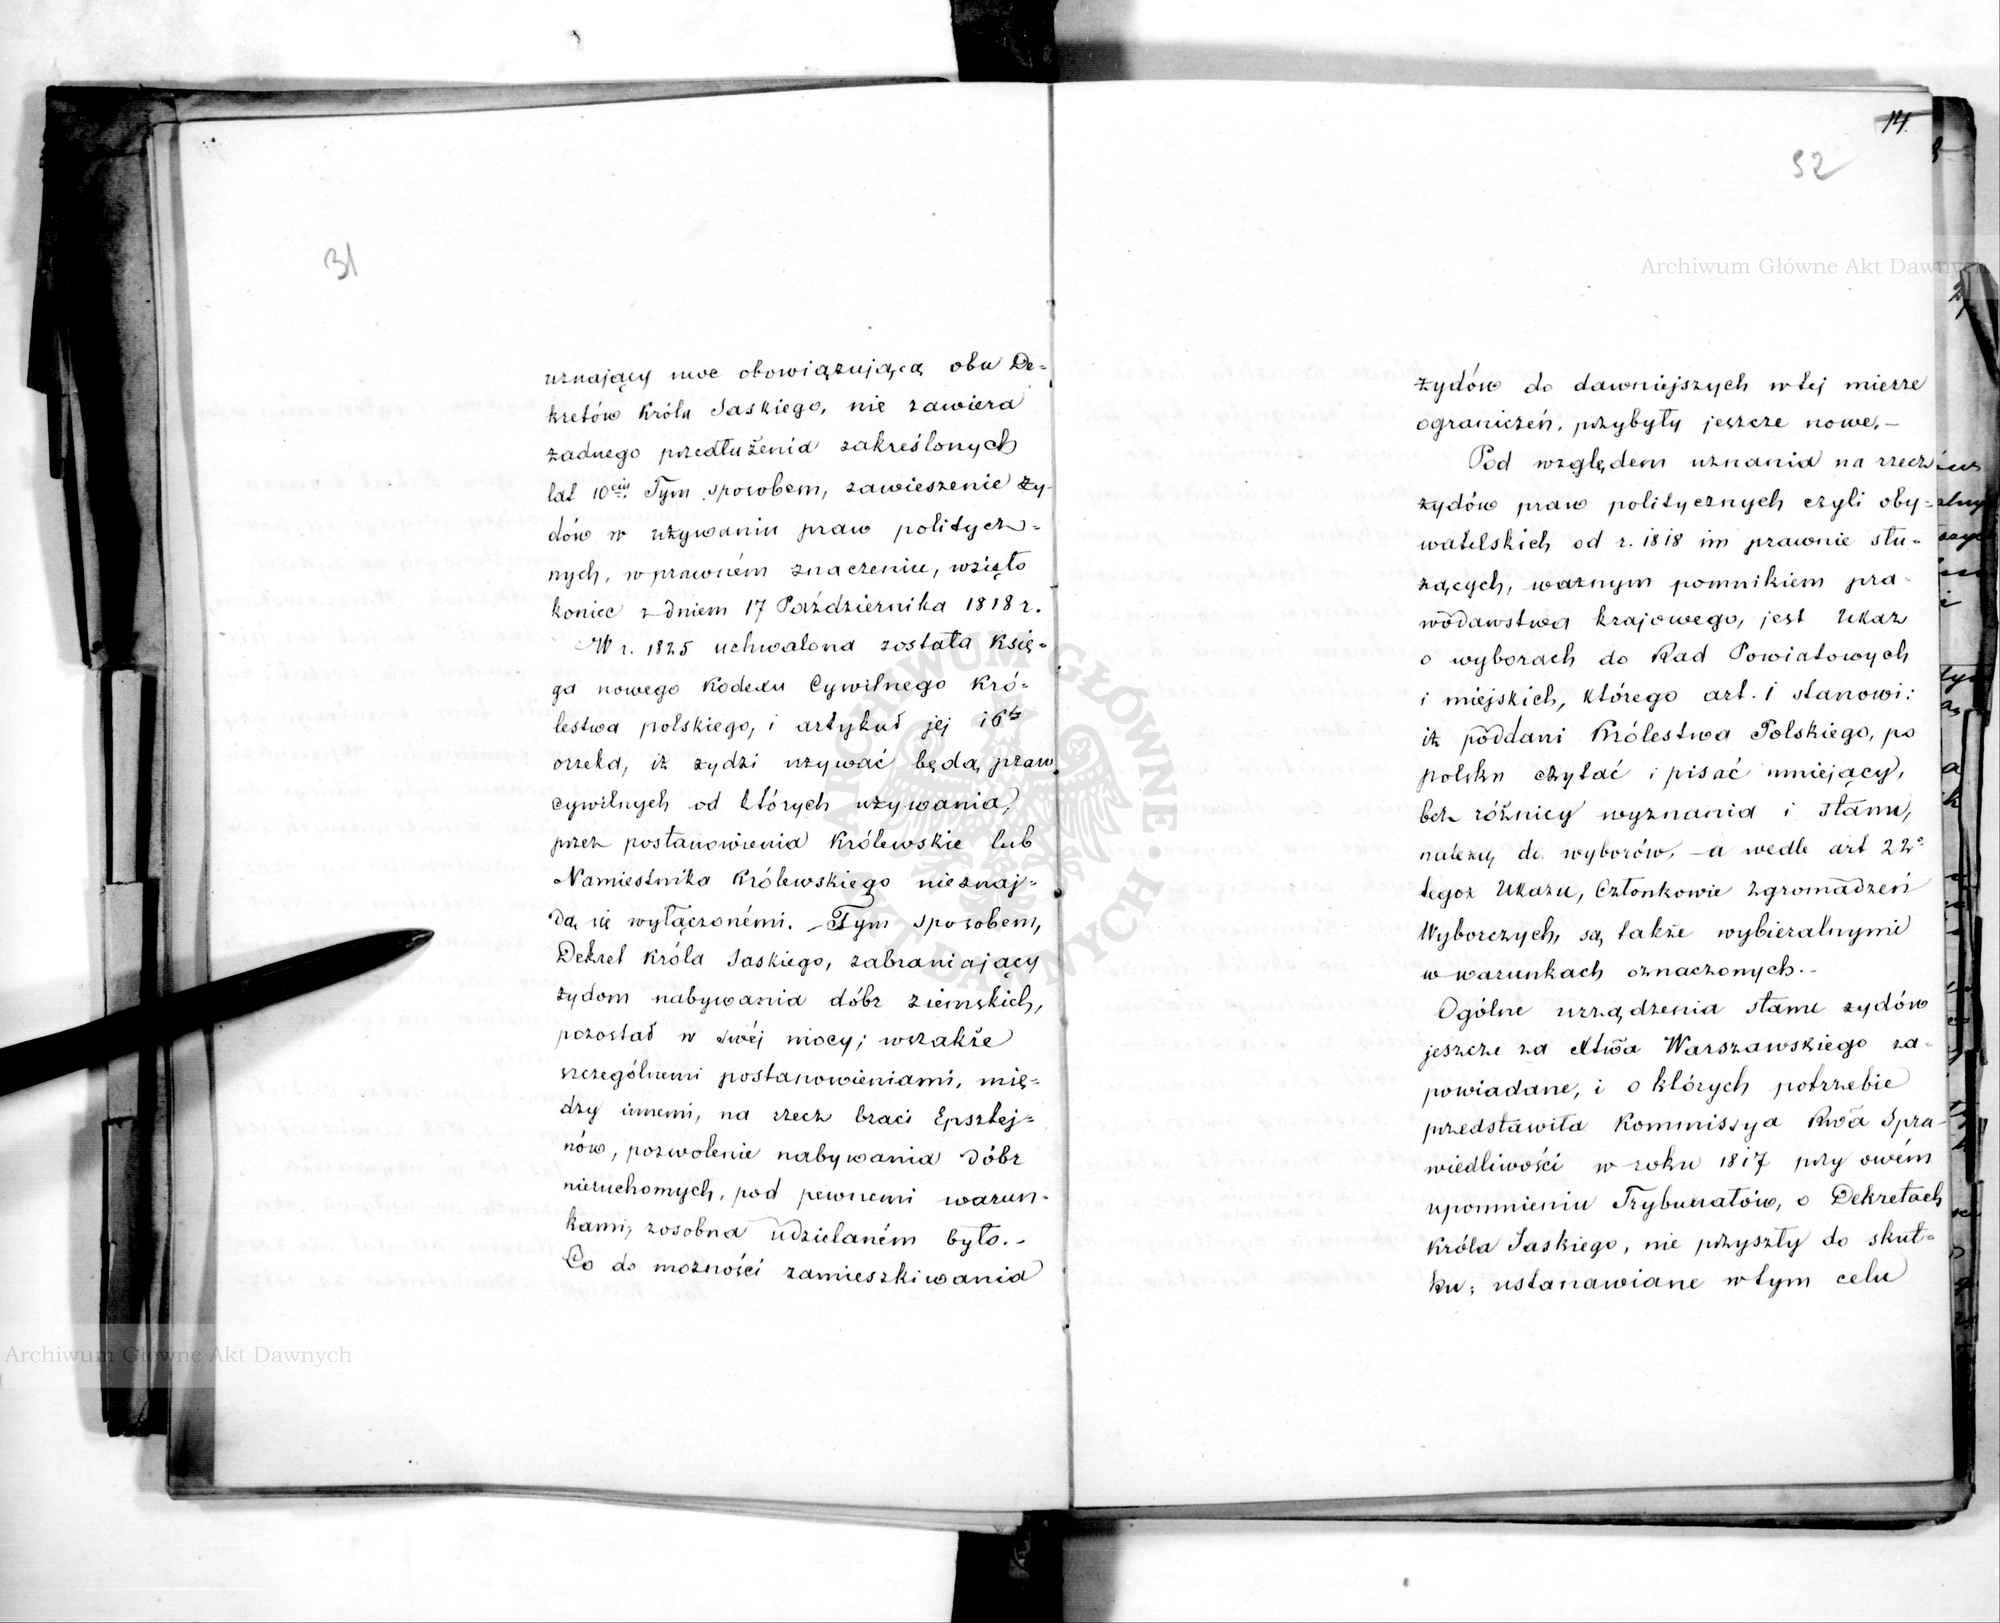 31
uznający moc obowiązującą obu De-
kretów Króla Saskiego, nie zawiera
żadnego przedłużenia zakreślonych
lat 10ciu. Tym sposobem, zawieszenie ży-
dów w używaniu praw politycz-
nych, w prawném znaczeniu, wzięło
koniec z dniem 17 Października 1818 r.
W r. 1825 uchwalona została Księ-
ga nowego Kodexu Cywilnego Kró-
lestwa polskiego, i artykuł jej 16ty
orzeka, iż żydzi używać będą praw
cywilnych od których używania,
przez postanowienia Królewskie lub
Namiestnika Królewskiego nieznaj-
dą się wyłączonémi. – Tym sposobem,
Dekret Króla Saskiego, zabraniający
żydom nabywania dóbr ziemskich,
pozostał w swéj mocy; wszakże
szczególnemi postanowieniami, mię-
dzy innemi, na rzecz braci Epsztej-
nów, pozwolenie nabywania dóbr
nieruchomych, pod pewnemi warun-
kami, zosobna udzielaném było. -
Co do możności zamieszkiwania
14.
32
żydów do dawniejszych w tej mierze
ograniczeń, przybyły jeszcze nowe. –
Pod względem uznania na rzecz
żydów praw politycznych czyli oby-
watelskich od r. 1818 im prawnie słu-
żących, ważnym pomnikiem pra-
wodawstwa krajowego, jest Ukaz
o wyborach do Rad Powiatowych
i miejskich, którego art. 1 stanowi:
iż poddani Królestwa Polskiego, po
polsku czytać i pisać umiejący,
bez różnicy wyznania i stanu,
należą do wyborów, – a wedle art 22o
tegoż Ukazu, Członkowie Zgromadzeń
Wyborczych, są także wybieralnymi
w warunkach oznaczonych. -
Ogólne urządzenia stanu żydów
jeszcze za Xtwa Warszawskiego za-
powiadane, i o których potrzebie
przedstawiła Kommissya Rwa Spra-
wiedliwości w roku 1817 przy owém
upomnieniu Trybunałów, o Dekretach
Króla Saskiego, nie przyszły do skut-
ku; ustanawiane w tym celu
Archiwum Główne Akt Dawnych
Archiwum Główne Akt Dawnych
ARCHIWUM GŁÓWNE AKT DAWNYCH